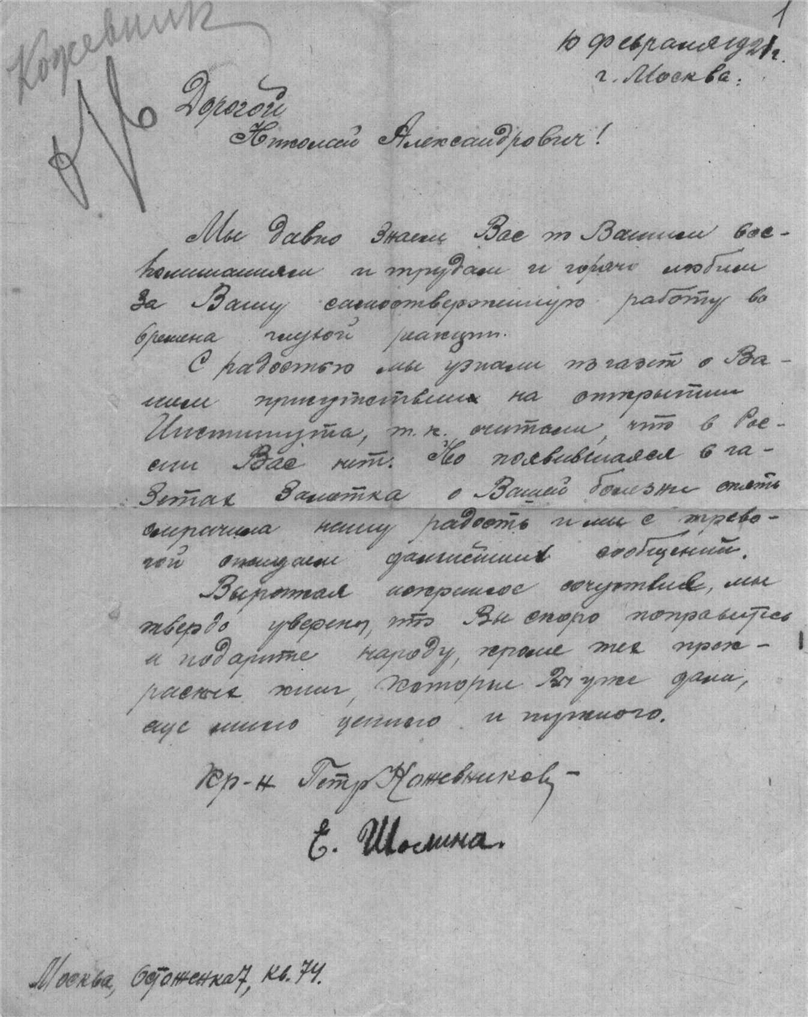 1
Кожевник
10 февраля 1921 г.
г. Москва.
Дорогой
Николай Александрович!
Мы давно знаем Вас по Вашим вос-
поминаниям и трудам и горячо любим
за Вашу самоотверженную работу во
времена глухой реакции.
С радостью мы узнали из газет о Ва-
шем присутствии на открытии
Института, т.к. считали, что в Рос-
сии Вас нет. Но появившаяся в га-
зетах заметка о Вашей болезни опять
омрачила нашу радость и мы с трево-
гой ожидаем дальнейших сообщений.
Выражая искреннее сочувствие, мы
твердо уверены, что Вы скоро поправитесь
и подарите народу, кроме тех прек-
расных книг, которые Вы уже дали,
еще много ценного и нужного.
Кр-н Петр Кожевников –
Е. Шолина.
Москва, Остоженка 7, кв. 74.